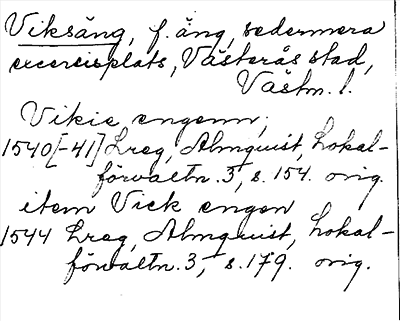 Viksäng, f. äng, sedermera
excercisplats, Västerås stad,
Västm. l.
Vikis engenn,
1540[-41] Lreg, Almquist, Lokal-
förvaltn. 3, s. 154. orig.
item Vick engen
1544 Lreg, Almquist, Lokal-
förvaltn. 3, s. 179. orig.